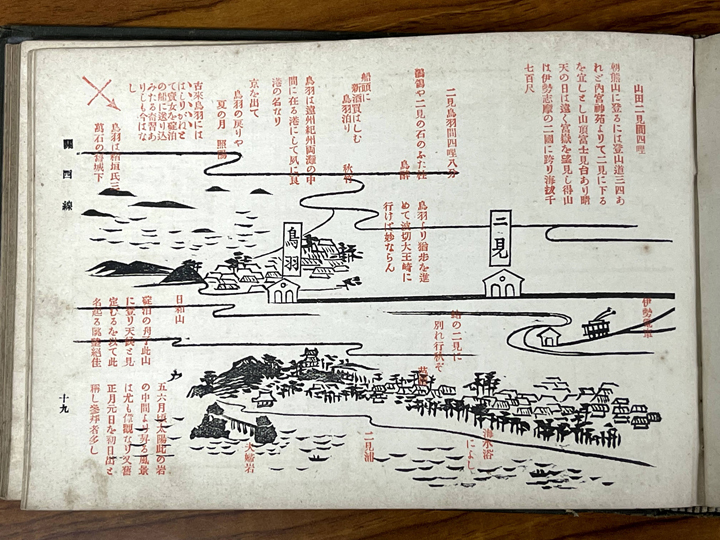 山田二見間四哩
朝熊山に登るには登山道三四あ
れど内宮神苑よりて二見に下る
を宜しとし山頂富士見台あり晴
天の日は遠く富嶽を望見し得山
は伊勢志摩の二國に跨り海抜千
七百尺
二見鳥羽間四哩八分
鶺鴒や二見の石のふた柱
鳥醉
船頭に
新酒買はしむ
鳥羽泊り
秋竹
鳥羽は遠州紀州両灘の中
間に在る港にして夙に良
港の名なり
京を出て
鳥羽の戻りや
夏の月
古来鳥羽には
はしりがねと
て賣女を碇泊
の船に送り込
みたる奇習あ
りしも今はな
し
鳥羽は稲垣氏三
萬石の舊城下
鳥羽より猶歩を進
めて波切大王崎に
行けば妙ならん
二見
鳥羽
蛤の二見に
別れ行秋ぞ
日和山
碇泊の舟子此山
に登り天候を見
定むるを以て此
名起る眺望絶佳
五六月頃太陽此の岩
の中間より昇る風景
は尤も偉観なり又舊
正月元日を初日出と
稱し參拜者多し
夫婦岩
二見浦
海水浴
によし
關四線
十九